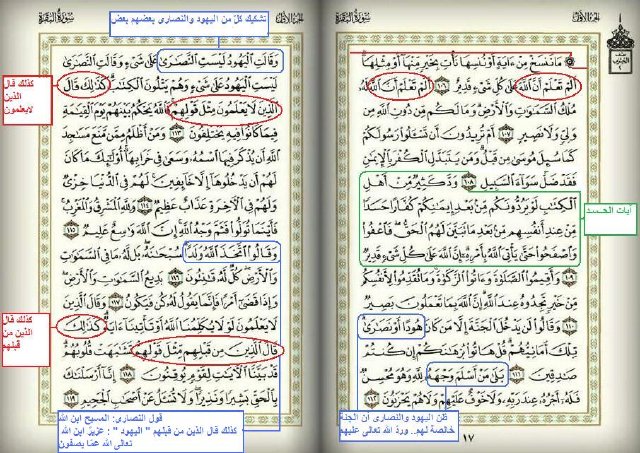 الجزء الأول
سورة البقرة
مَا نَنسَخْ مِنْ ءَايَةٍ أَوْ نُنسِهَا نَأْتِ بِخَيْرٍ مِّنْهَا أَوْ مِثْلِهَا
أَلَمْ تَعْلَمْ أَنَّ اللَّهَ عَلَىٰ كُلِّ شَيْءٍ قَدِيرٌ ١٠٦ أَلَمْ تَعْلَمْ أَنَّ اللَّهَ لَهُ
مُلْكُ السَّمَٰوَٰتِ وَالْأَرْضِ وَمَا لَكُم مِّن دُونِ اللَّهِ مِن
وَلِيٍّ وَلَا نَصِيرٍ ١٠٧ أَمْ تُرِيدُونَ أَن تَسْـَٔلُوا رَسُولَكُمْ
كَمَا سُئِلَ مُوسَىٰ مِن قَبْلُ وَمَن يَتَبَدَّلِ الْكُفْرَ بِالْإِيمَٰنِ
فَقَدْ ضَلَّ سَوَآءَ السَّبِيلِ ١٠٨ وَدَّ كَثِيرٌ مِّنْ أَهْلِ
الْكِتَٰبِ لَوْ يَرُدُّونَكُم مِّن بَعْدِ إِيمَٰنِكُمْ كُفَّارًا حَسَدًا
مِّنْ عِندِ أَنفُسِهِم مِّن بَعْدِ مَا تَبَيَّنَ لَهُمُ الْحَقُّ فَاعْفُوا
وَاصْفَحُوا حَتَّىٰ يَأْتِيَ اللَّهُ بِأَمْرِهِ إِنَّ اللَّهَ عَلَىٰ كُلِّ شَيْءٍ قَدِيرٌ
١٠٩ وَأَقِيمُوا الصَّلَوٰةَ وَءَاتُوا الزَّكَوٰةَ وَمَا تُقَدِّمُوا لِأَنفُسِكُم
مِّنْ خَيْرٍ تَجِدُوهُ عِندَ اللَّهِ إِنَّ اللَّهَ بِمَا تَعْمَلُونَ بَصِيرٌ
١١٠ وَقَالُوا لَن يَدْخُلَ الْجَنَّةَ إِلَّا مَن كَانَ هُودًا أَوْ نَصَٰرَىٰ
تِلْكَ أَمَانِيُّهُمْ قُلْ هَاتُوا بُرْهَٰنَكُمْ إِن كُنتُمْ
صَٰدِقِينَ ١١١ بَلَىٰ مَنْ أَسْلَمَ وَجْهَهُ لِلَّهِ وَهُوَ مُحْسِنٌ
فَلَهُ أَجْرُهُ عِندَ رَبِّهِ وَلَا خَوْفٌ عَلَيْهِمْ وَلَا هُمْ يَحْزَنُونَ ١١٢
١٧
آيات الحسد
ظن اليهود والنصارى أن الجنة
خالصة لهم.. ورد الله تعالى عليهم
الجزء الأول
سورة البقرة
تشكيك كل من اليهود والنصارى بعضهم بعض
وَقَالَتِ الْيَهُودُ لَيْسَتِ النَّصَٰرَىٰ عَلَىٰ شَيْءٍ وَقَالَتِ النَّصَٰرَىٰ
لَيْسَتِ الْيَهُودُ عَلَىٰ شَيْءٍ وَهُمْ يَتْلُونَ الْكِتَٰبَ كَذَٰلِكَ قَالَ
الَّذِينَ لَا يَعْلَمُونَ مِثْلَ قَوْلِهِمْ فَاللَّهُ يَحْكُمُ بَيْنَهُمْ يَوْمَ الْقِيَٰمَةِ
فِيمَا كَانُوا فِيهِ يَخْتَلِفُونَ ١١٣ وَمَنْ أَظْلَمُ مِمَّن مَّنَعَ مَسَٰجِدَ
اللَّهِ أَن يُذْكَرَ فِيهَا اسْمُهُ وَسَعَىٰ فِي خَرَابِهَا أُولَٰئِكَ مَا كَانَ
لَهُمْ أَن يَدْخُلُوهَا إِلَّا خَآئِفِينَ لَهُمْ فِي الدُّنْيَا خِزْيٌ
وَلَهُمْ فِي الْءَاخِرَةِ عَذَابٌ عَظِيمٌ ١١٤ وَلِلَّهِ الْمَشْرِقُ وَالْمَغْرِبُ
فَأَيْنَمَا تُوَلُّوا فَثَمَّ وَجْهُ اللَّهِ إِنَّ اللَّهَ وَٰسِعٌ عَلِيمٌ ١١٥
وَقَالُوا اتَّخَذَ اللَّهُ وَلَدًا سُبْحَٰنَهُ بَل لَّهُ مَا فِي السَّمَٰوَٰتِ
وَالْأَرْضِ كُلٌّ لَّهُ قَٰنِتُونَ ١١٦ بَدِيعُ السَّمَٰوَٰتِ وَالْأَرْضِ
وَإِذَا قَضَىٰ أَمْرًا فَإِنَّمَا يَقُولُ لَهُ كُن فَيَكُونُ ١١٧ وَقَالَ الَّذِينَ
لَا يَعْلَمُونَ لَوْلَا يُكَلِّمُنَا اللَّهُ أَوْ تَأْتِينَآ ءَايَةٌ كَذَٰلِكَ
قَالَ الَّذِينَ مِن قَبْلِهِم مِّثْلَ قَوْلِهِمْ تَشَٰبَهَتْ قُلُوبُهُمْ
قَدْ بَيَّنَّا الْءَايَٰتِ لِقَوْمٍ يُوقِنُونَ ١١٨ إِنَّآ أَرْسَلْنَٰكَ
بِالْحَقِّ بَشِيرًا وَنَذِيرًا وَلَا تُسْـَٔلُ عَنْ أَصْحَٰبِ الْجَحِيمِ ١١٩
كذلك قال
الذين
لايعلمون
كذلك قال
الذين من
قبلهم
قول النصارى: المسيح ابن الله
كذلك قال الذين من قبلهم " اليهود " : عزيرٌ ابن الله
تعالى الله عمّا يصفون